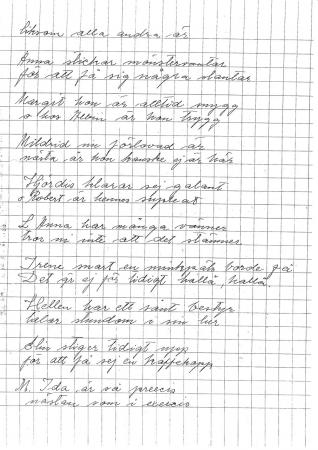 liksom alla andra är
Anna stickar mönstervantar
för att få sig några slantar
Margit hon är alltid mygg
o hos Melvin är hon trygg
Mildrid nu förlovad är
nästa år hon kanske ej är här
Hjördis klarar sej galant
o Robert är hennes
L Anna har många vänner
tror ni inte att det stämmer
Irene snart en minkpäls borde få
Det gr ej för tidigt hallå, hallå
Hellen har ett sånt bestyr
talar stundom i sin lur
Elin stiger tidigt upp
för att få sej en kaffekopp
M. Ida är så precis
nästan som i exercis